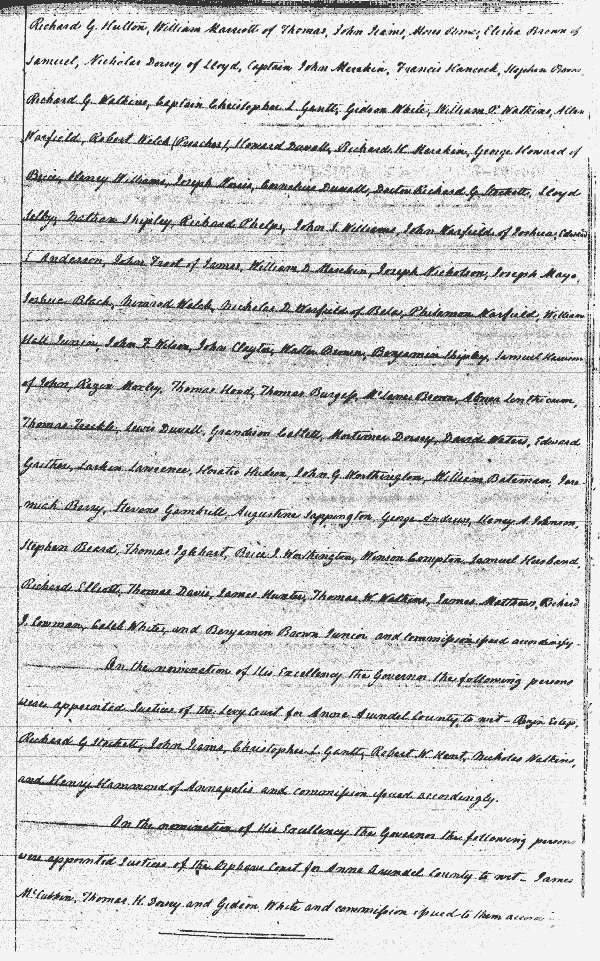 Richard G. Hutton, William Marriott of Thomas, John Iiams, Moses Orme, Elisha Brown of
Samuel, Nicholas Dorsey of Lloyd, Captain John Merekin, Francis Hancock, Stephen Boone
Richard G. Watkins, Captain Christopher L. Gantt, Gideon White, William P. Watkins, Allen
Warfield, Robert Welch (Preacher), Howard Duvall, Richard H. Merekin, George Howard of
Brice, Henry Williams, Joseph Norris, Cornelius Duvall, Doctor Richard G. Stockett, Lloyd
Selby, Nathan Shipley, Richard Phelps, John S. Williams, John Warfield of Joshua, Edward
E Anderson, John Frost of James, William D. Merekin, Joseph Nicholson, Joseph Mayo,
Joshua Black, Howard Welch, Nicholas D. Warfield of Belas, Philemon Warfield, William
Hall Junior, John F. Wilson, John Claytor, Walter Brown, Benjamin Shipley, Samuel Harrison
of John, Rezin Moxley, Thomas Hood, Thomas Burgess, McLane Brown, Abner Linthicum,
Thomas Treakle, Lewis Duvall, Grandison Catlett, Mortimer Dorsey, David Waters, Edward
Gaither, Larkin Lawrence, Horatio Hudson, John G. Worthington, William Bateman, Jere
miah Berry, Stevens Gambrill, Augustine Sappington, George Andrews, Henry A. Johnson,
Stephen Beard, Thomas Iglehart, Brice J. Worthington, Winson Compton, Samuel Husband,
Richard Elliott, Thomas Davis, James Hunter, Thomas W. Watkins, James Matthews, Richard
J. Cowman, Caleb White, and Benjamin Brown Junior and commission issued accordingly.
On the nomination of His Excellency the Governor the following persons
were appointed Justices of the Levy Court for Anne Arundel County, to wit - Rezin Estep,
Richard G Stockett, John Iiams, Christopher L. Gantt, Robert W. Kent, Nicholas Watkins,
and Henry Hammond of Annapolis and commission issued accordingly.
On the nomination of His Excellency the Governor the following persons
were appointed Justices of the Orphans Court for Anne Arundel County to wit - James
McCubbin, Thomas H. Dorsey and Gideon White and commission issued to them accor